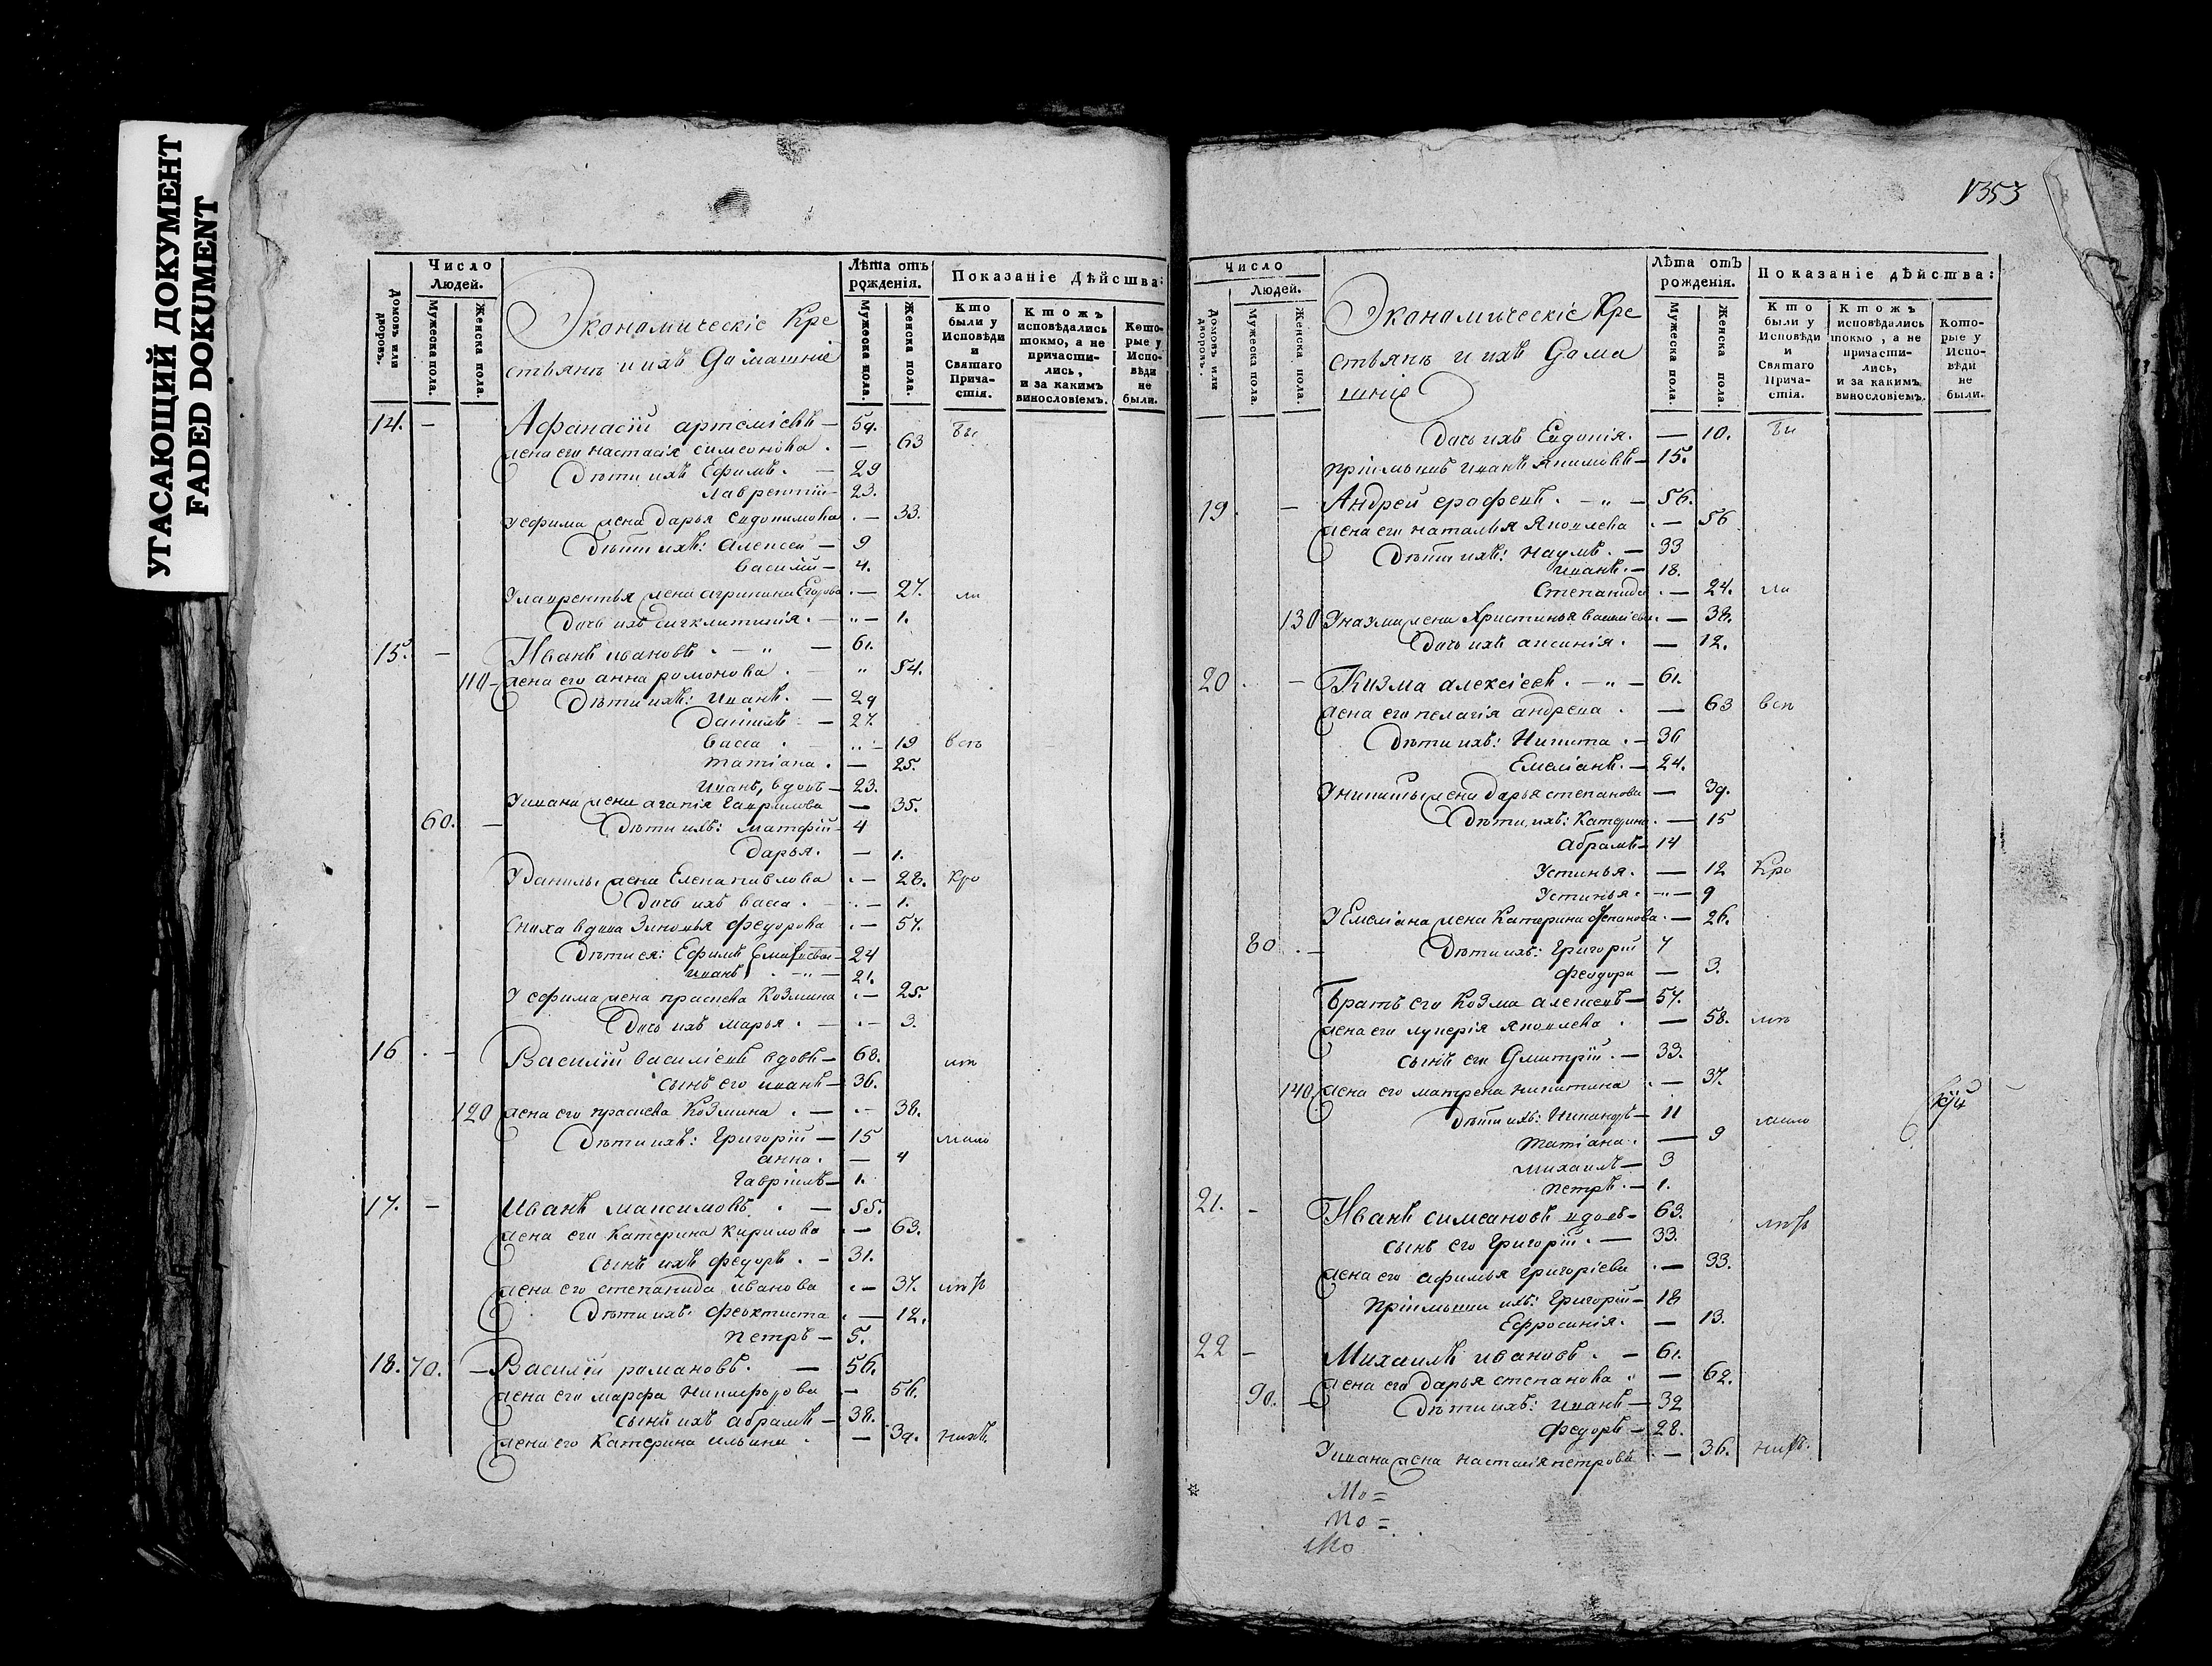 УГАСАЮЩИЙ ДОКУМЕНТ
FADED DOKUMENT
Число Людей.
Домовъ или дворовъ.
Мужеска пола.
Женска пола.
Экономическiе Кре
стьянъ и ихъ домашнiе
Лѣта отъ рожденiя.
Мужеска пола.
Женска пола.
Показанiе дѣйства:
Кто были у Исповѣди и Святаго Причастiя.
Ктожъ исповѣдались токмо, а не причастились, и за какимъ винословiемъ.
Которые у Исповѣди не были.
14. — Афанасiй артемiевъ — 59. бы
жена его настасiя симеонова . — 63
Дѣти ихъ Ефимъ . — 29
лаврентiй — 23.
У ефима жена дарья евдокимова . — 33.
Дѣти ихъ: алексей — 9
василiй — 4.
У лаврентья жена агрипина Егорова . — 27. ли
Дочь ихъ сигклитикiя . — " — 1.
15. — Иванъ ивановъ . — " — 61.
110 — жена его анна романова . — " 54.
Дѣти ихъ: иванъ . — 29
данiилъ . — 27.
васса . — " — 19 всѣ
татiана . — 25.
иванъ, вдовъ — 23.
У ивана жена агапiя гаврилова — 35.
60. — Дѣти ихъ: матфiй — 4
Дарья . — 1.
У данилы жена Елена павлова . — 28. кро
Дочь ихъ васса . — . — 1.
сноха вдова Зиновья федорова . — 57.
Дѣти ея: Ефимъ — 24
иванъ . — " — 21.
У ефима жена праскева козмина . — 25.
Дочь ихъ марья . — . — 3.
16 . — Василiй василiевъ вдовъ — 68.
сынъ его иванъ — 36.
120 жена его праскева козмина . — . — 38.
Дѣти ихъ: Григорiй — 15
анна . — 4
Гаврiилъ — 1.
17. — Иванъ максимовъ . — 55.
жена его катерина кирилова . — 63.
сынъ ихъ федоръ . — 31.
жена его степанида иванова . — 37.
Дѣти ихъ: феоктиста . — 12.
петръ — 5.
18. 70. — Василiй романовъ . — 56.
жена его марфа никифорова — 56.
сынъ ихъ абрамъ — 38.
жена его катерина ильина . — 39. нихъ.
1353
Число Людей.
Домовъ или дворовъ.
Мужеска пола.
Женска пола.
Экономическiе Кре
стьянъ и ихъ Дома
шнiе
Лѣта отъ рожденiя.
Мужеска пола.
Женска пола.
Показанiе дѣйства:
Кто были у Исповѣди и Святаго Причастiя.
Ктожъ исповѣдались токмо, а не причастились, и за какимъ винословiемъ.
Которые у Исповѣди не были.
Дочь ихъ Евдокiя . — 10. бы
прiимышъ иванъ — 15.
19. — Андрей ерофеевъ . — " — 56.
жена его наталья яковлева . — 56
Дѣти ихъ: наумъ . — 33
иванъ . — 18.
Степанида . — 24. ли
130 У наума жена Христинья . — 38.
Дочь ихъ аксинiя . — 12.
20 . — Кизма алексiевъ . — " — 61.
жена его пелагiя андреева . — 63 всѣ
Дѣти ихъ: Никита . — 36
Емелiанъ . — 24.
У никиты жена дарья степанова — 39.
Дѣти ихъ: катерина . — 15
абрамъ — 14
Устинья . — 12 кро
Устинья . — " — 9
У Емелiана жена катерина степанова . — 26.
80 . — Дѣти ихъ: Григорiй 7
феодора — 3.
Братъ его козма алексеевъ — 57.
жена его лукерiя яковлева . — 58.
сынъ его Дмитрiй . — 33.
140 жена его матрена никитина . — 37.
Дѣти ихъ: — 11
татiана . — 9
михаилъ — 3
петръ . — 1.
21. — Иванъ симеановъ вдовъ — 63.
сынъ его Григорiй . — 33.
жена его афимья григорiева . — 33.
прiимыши ихъ: Григорiй — 18
Ефросинiя . — 13.
22 — Михаилъ ивановъ . — 61.
жена его дарья степанова . — 62.
90. — Дѣти ихъ: иванъ — 32
федоръ — 28.
У ивана жена настасiя петрова . — 36. нихъ.
Мо =
Мо =
Мо